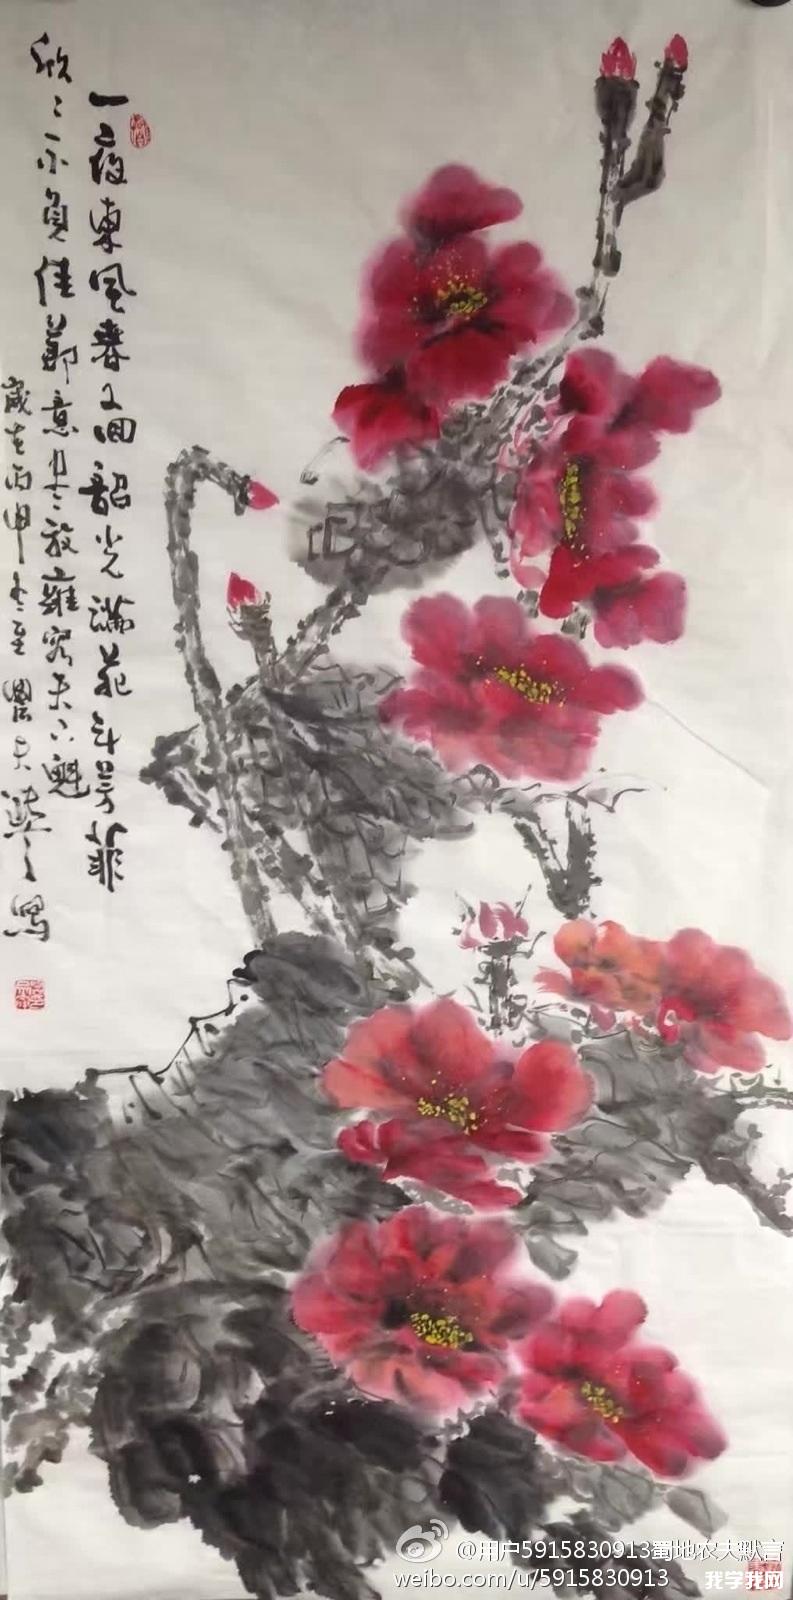 一夜東風春又回韶光滿苑鬥芳菲
欣欣不負佳節意早放雍容天下魁
歲在丙申冬至農夫默言寫
@用户5915830913蜀地农夫默言
weibo.com/u/5915830913
我学我网